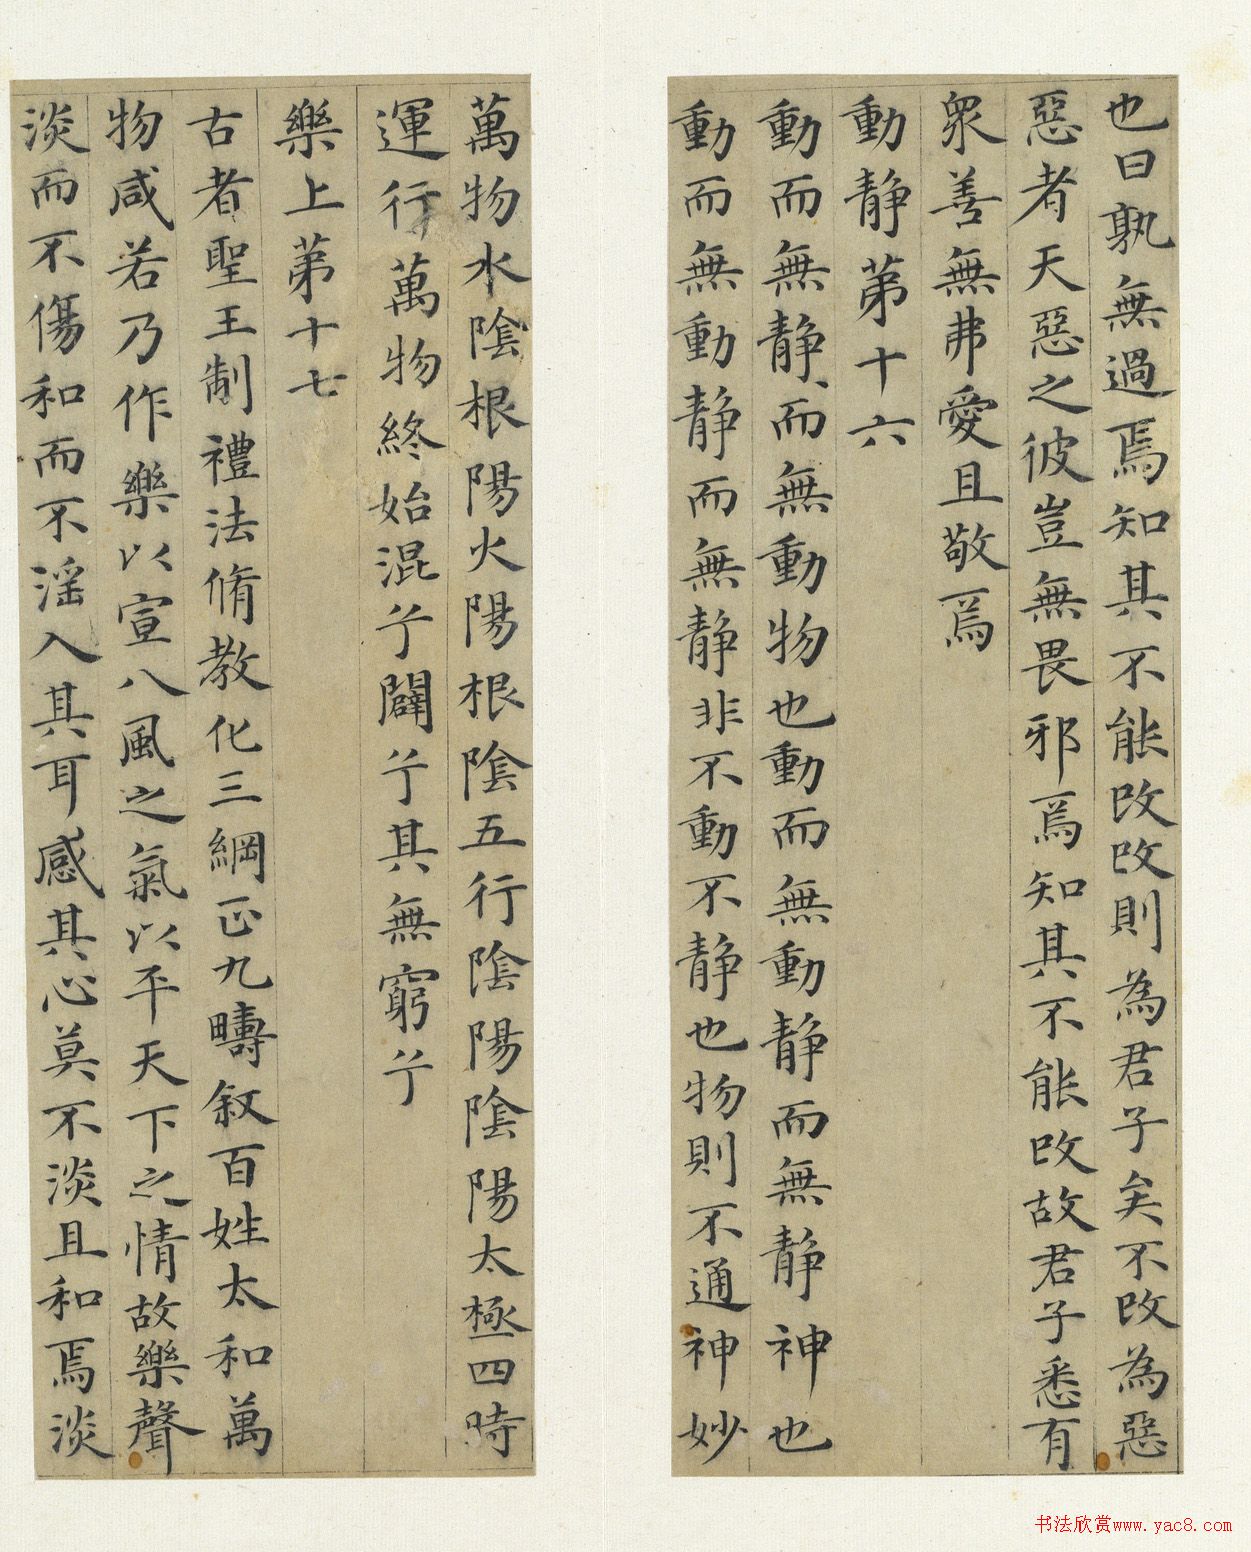 也曰孰無過焉知其不能改改則為君子矣不改為惡
惡者天惡之彼豈無畏邪焉知其不能改故君子悉有
眾善無弗愛且敬焉
動靜第十六
動而無靜靜而無動物也動而無動靜而無靜神也
動而無動靜而無靜非不動不靜也物則不通神妙
萬物水陰根陽火陽根陰五行陰陽陰陽太極四時
運行萬物終始混兮闢兮其無窮兮
樂上第十七
古者聖王制禮法脩教化三綱正九疇敘百姓太和萬
物咸若乃作樂以宣八風之氣以平天下之情故樂聲
淡而不傷和而不淫入其耳感其心莫不淡且和焉淡
书法欣赏www.yac8.com